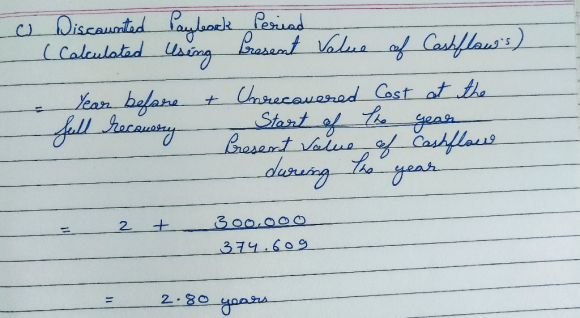 c) Discounted Payback Period
(Calculated Using Present Value of Cashflow's)
= Year before + Unrecovered Cost at the
full recovery Start of the year
Present Value of Cashflow
during the year
= 2 + 300.000
374.609
= 2.80 years